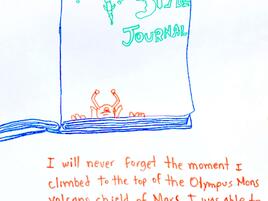 JOURNAL
I will never forget the moment I
climbed to the top of the Olympus Mons
volcano shield of Mars. I was able to